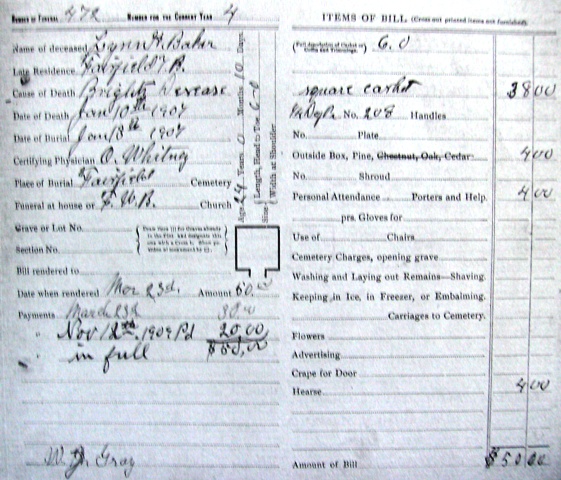 Number of Funeral 472 Number for the Current Year 4
Name of deceased Lynn H. Baker
Late Residence Fairfield
Cause of Death Brights Disease
Date of Death Jan 10th 1907
Date of Burial Jan 13th 1907
Certifying Physician O. Whitney
Place of Burial Fairfield Cemetery
Funeral at house or F. W. B. Church
Grave or Lot No.
Section No.
Bill rendered to
Date when rendered Mar 23d. Amount 50.00
Payments March 23d 30 00
" Nov 12th 1909 Pd 20.00
" in full $50,00
Gray
Age 24 Years 0 Months 10 Days
Size Length, Head to Toe, 6-0
Width at Shoulder
ITEMS OF BILL, (Cross out printed items not furnished)
6.0
square casket 38 00
No. 208 Handles
No. Plate
Outside Box, Pine, Chestnut, Oak, Cedar 4 00
No. Shroud
Personal Attendance Porters and Help. 4 00
prs. Gloves for
Use of Chairs
Cemetery Charges, opening grave
Washing and Laying out Remains—Shaving.
Keeping in Ice, in Freezer, or Embalming.
Carriages to Cemetery.
Flowers
Advertising
Crape for Door
Hearse 4 00
Amount of Bill $50 00